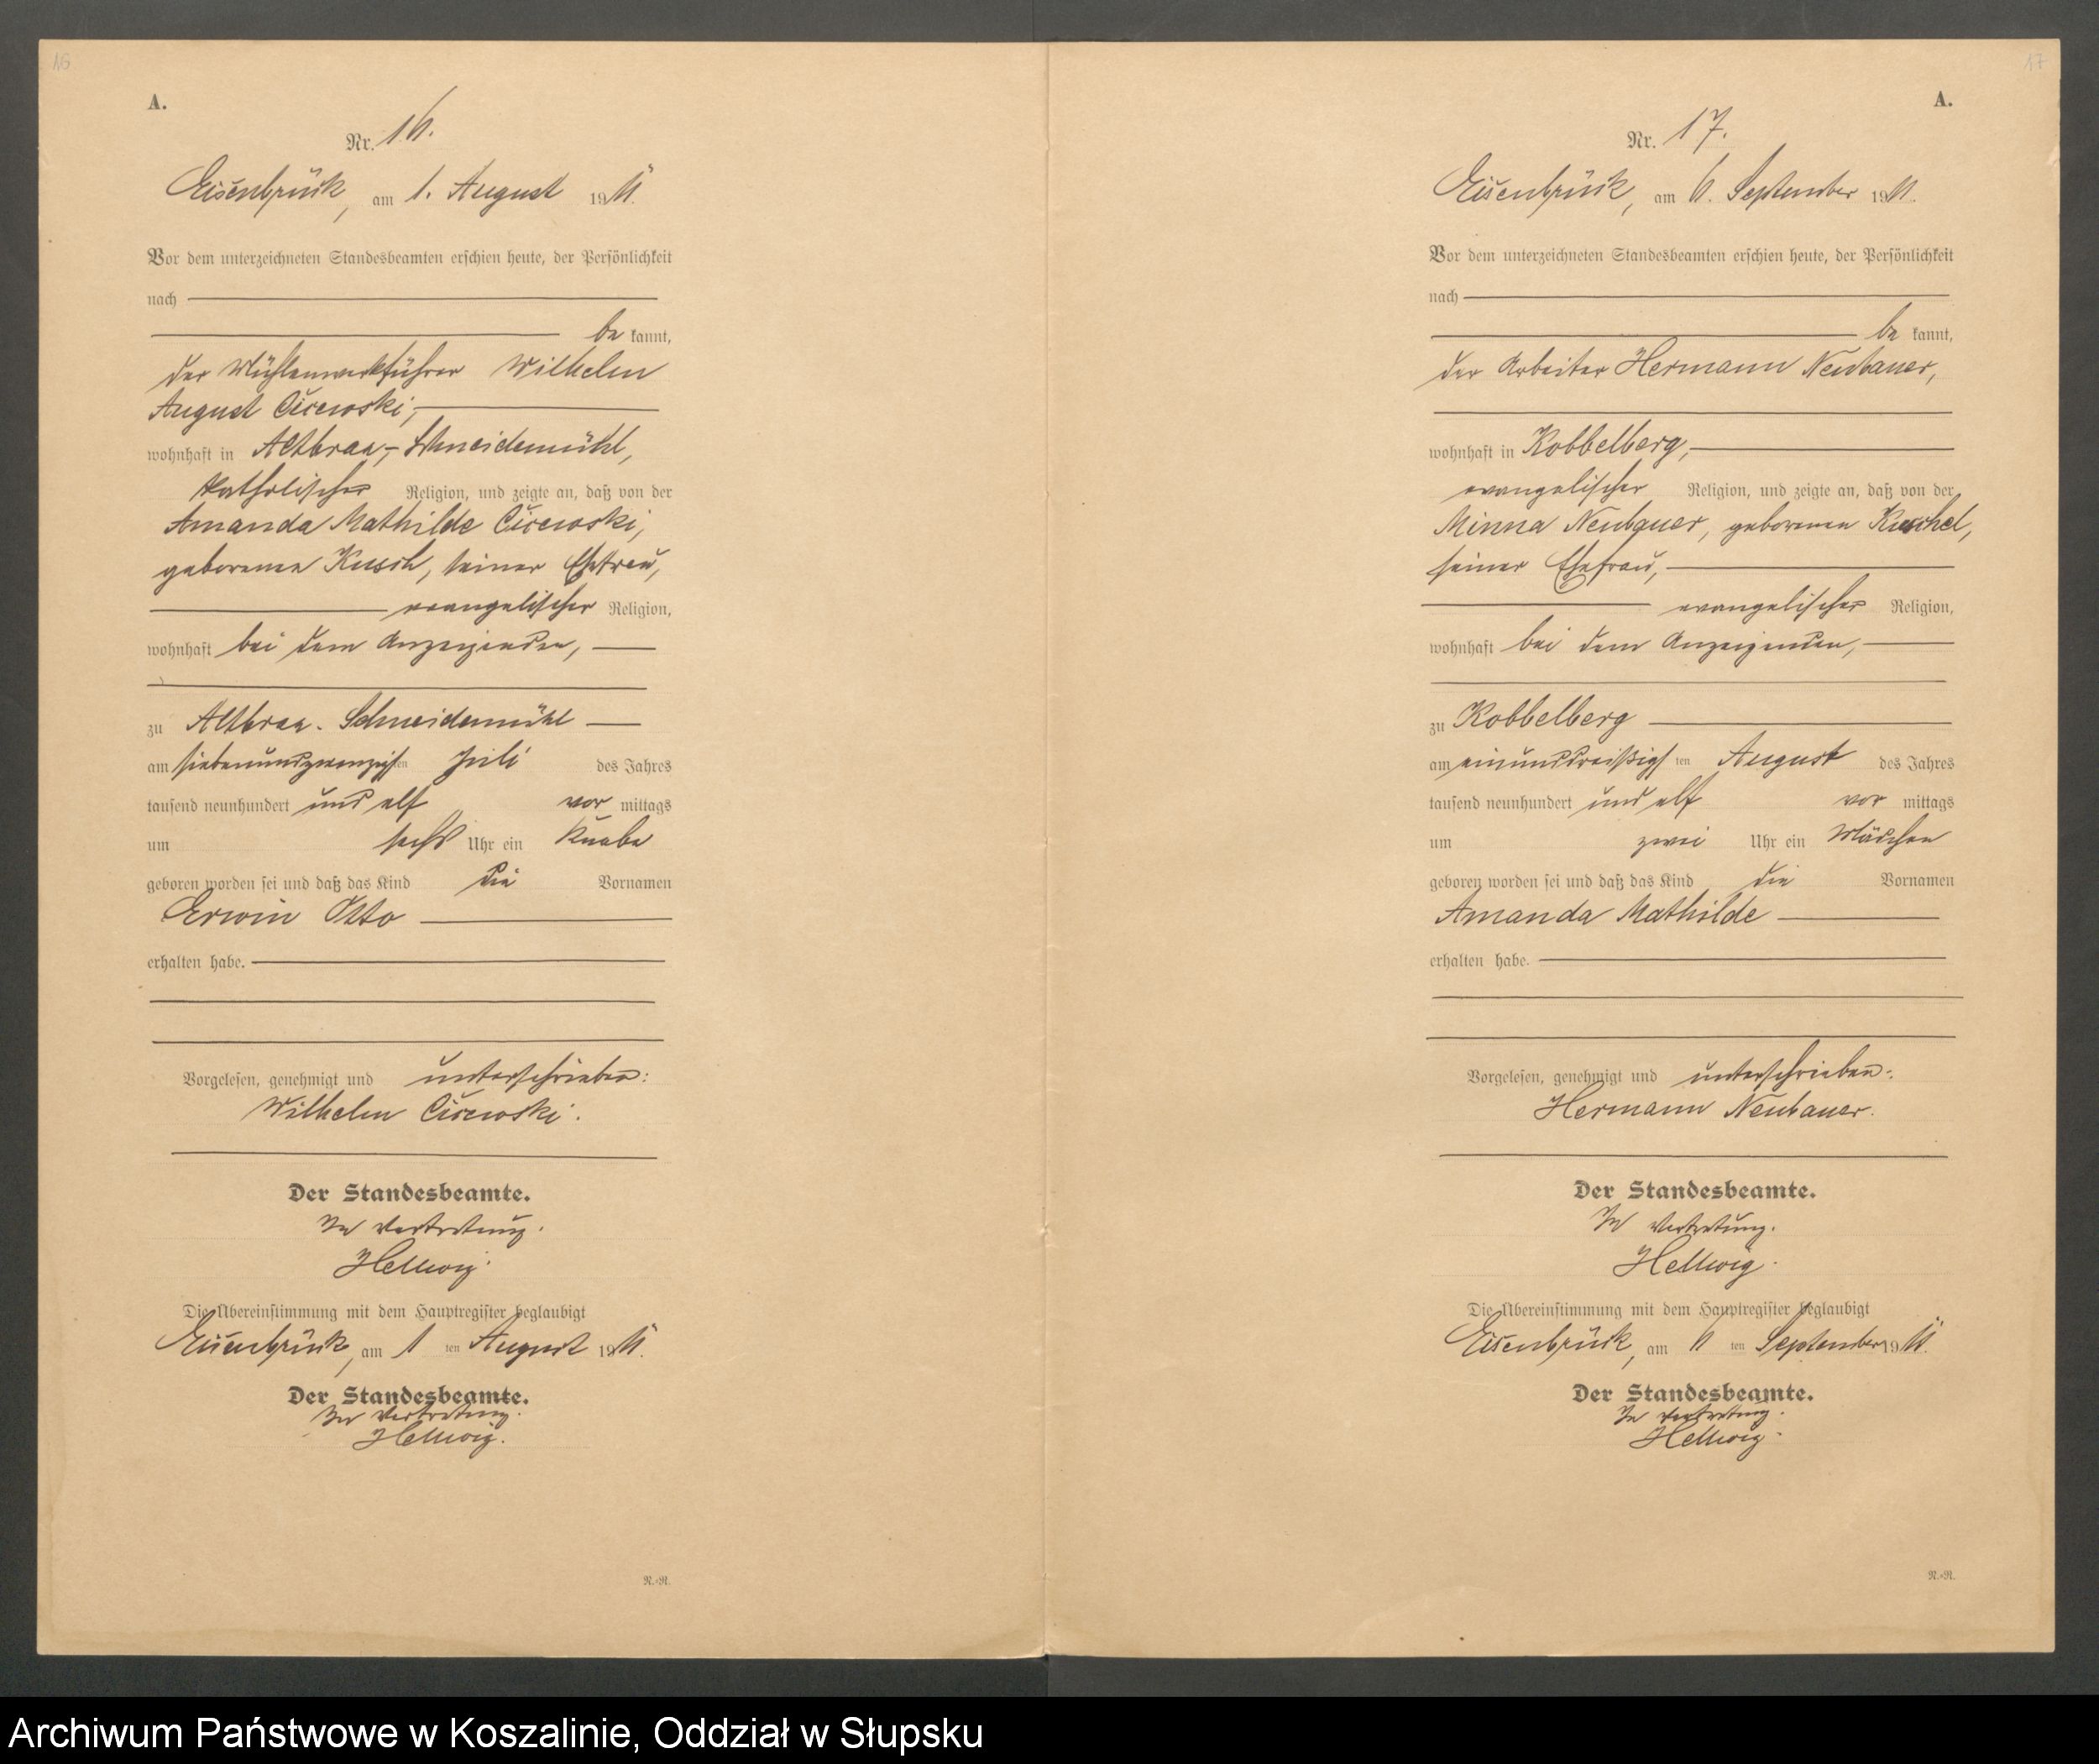 16
A.
Nr. 16.
Eisenbrück, am 1. August 1911.
Vor dem unterzeichneten Standesbeamten erschien heute, der Persönlichkeit
nach
be kannt,
der Mühlenwerkführer Wilhelm
August
wohnhaft in Altbraa-Schneidemühl,
katholischer Religion, und zeigte an, daß von der
Amanda Mathilde
geborenen Kusch, seiner Ehefrau,
evangelischer Religion,
wohnhaft bei dem Anzeigenden,
zu Altbraa-Schneidemühl
am siebenundzwanzigsten Juli des Jahres
tausend neunhundert und elf vor mittags
um sechs Uhr ein Knabe
geboren worden sei und daß das Kind die Vornamen
Erwin Otto
erhalten habe.
Vorgelesen, genehmigt und unterschrieben:
Wilhelm
Der Standesbeamte.
In Vertretung.
Hellwig.
Die Übereinstimmung mit dem Hauptregister beglaubigt
Eisenbrück, am 1 ten August 1911.
Der Standesbeamte.
In Vertretung.
Hellwig.
N.-N.
17
A.
Nr. 17.
Eisenbrück, am 6. September 1911.
Vor dem unterzeichneten Standesbeamten erschien heute, der Persönlichkeit
nach
be kannt,
der Arbeiter Hermann Neubauer,
wohnhaft in Kobbelberg,
evangelischer Religion, und zeigte an, daß von der
Minna Neubauer, geborenen Kuschel,
seiner Ehefrau,
evangelischer Religion,
wohnhaft bei dem Anzeigenden,
zu Kobbelberg
am einunddreißigsten August des Jahres
tausend neunhundert und elf vor mittags
um zwei Uhr ein Mädchen
geboren worden sei und daß das Kind die Vornamen
Amanda Mathilde
erhalten habe.
Vorgelesen, genehmigt und unterschrieben:
Hermann Neubauer.
Der Standesbeamte.
In Vertretung.
Hellwig.
Die Übereinstimmung mit dem Hauptregister beglaubigt
Eisenbrück, am 6 ten September 1911.
Der Standesbeamte.
In Vertretung.
Hellwig.
N.-N.
Archiwum Państwowe w Koszalinie, Oddział w Słupsku